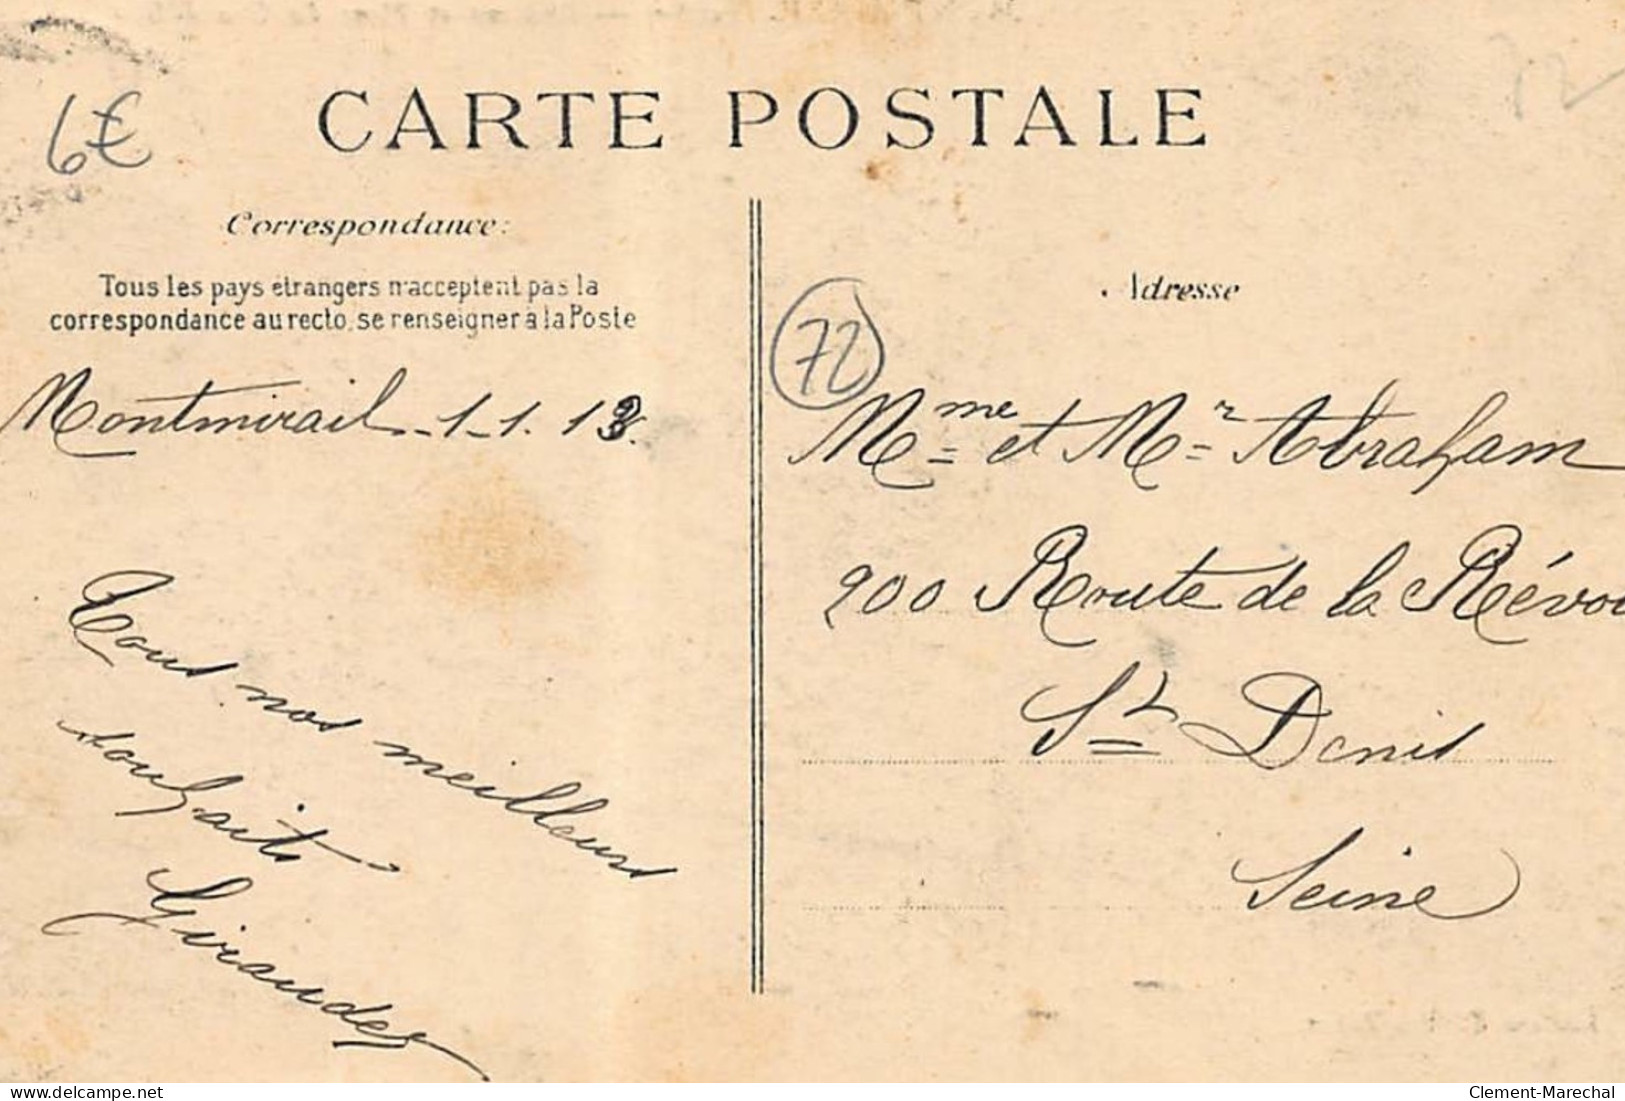 6€
CARTE POSTALE
Correspondance:
Tous les pays étrangers n'acceptent pas la
correspondance au recto, se renseigner à la Poste
Montmirail. 1-1.13.
Tous nos meilleurs
souhaits
Adresse
72
Mme et Mr Abraham
200 Route de la Révol
St Denis
Seine
www.delcampe.net
Clement-Marechal